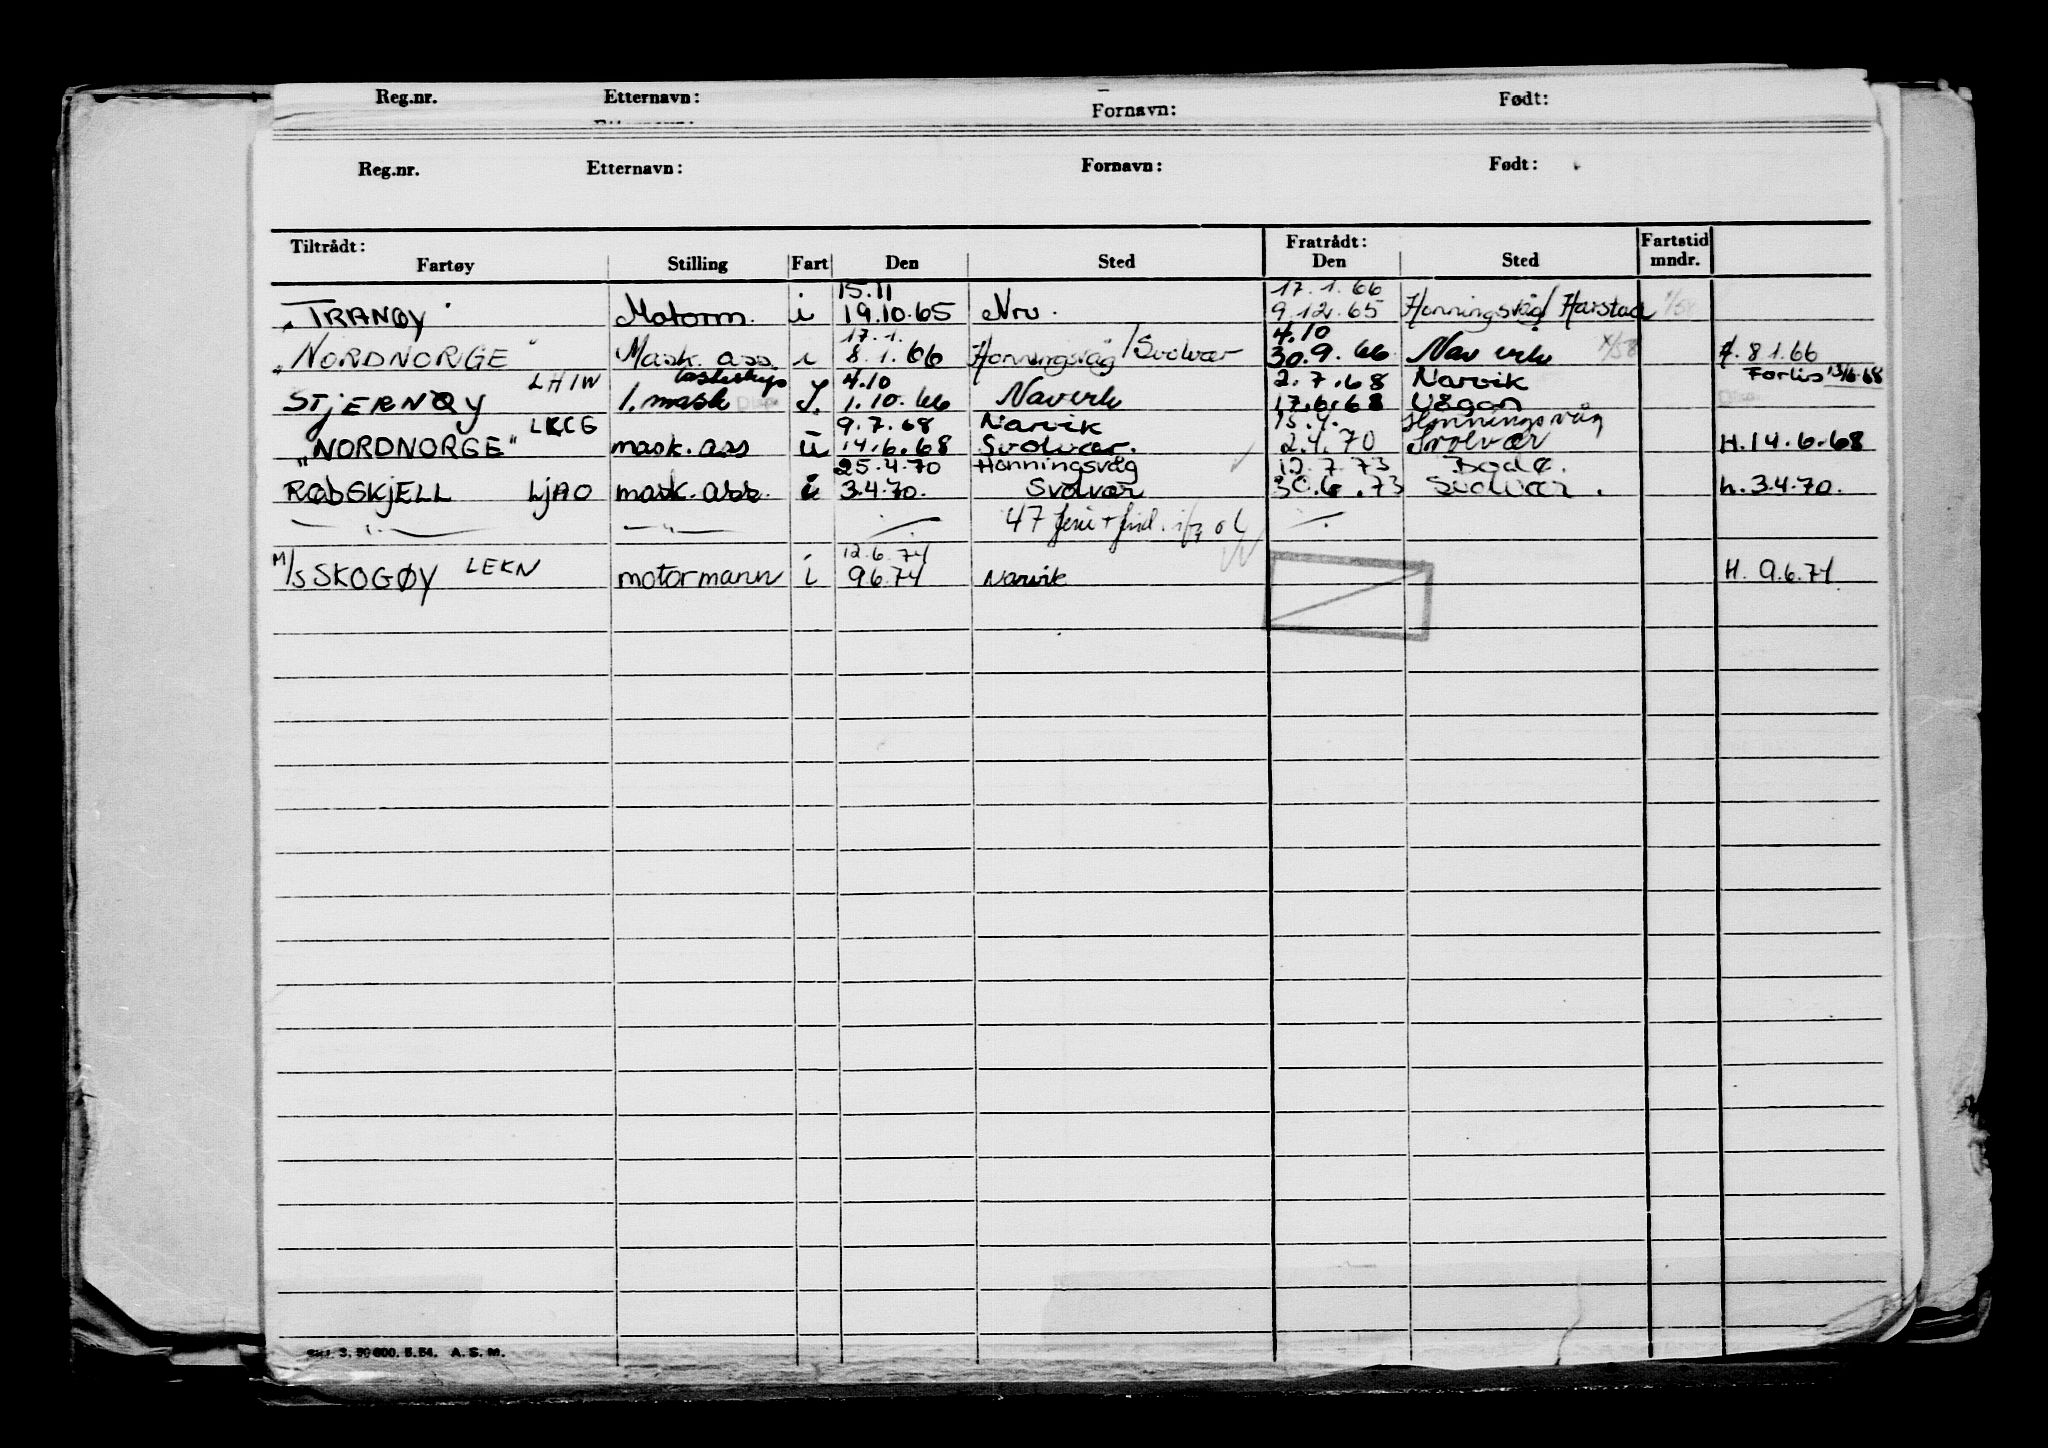 Reg.nr. Etternavn: Fornavn: Født:
Reg.nr. Etternavn: Fornavn: Født:
Tiltrådt: Fratrådt: Fartstid
Fartøy Stilling Fart Den Sted Den Sted mndr.
15.11 17.1.66
"TRANØY" Motorm. i 19.10.65 Nrv. 9.12.65 Honningsvåg/Harstad
17.1. 4.10
"NORDNORGE" Mask. ass. i 8.1.66 Honningsvåg/Svolvær 30.9.66 Nav erk X/58 H. 8 1.66
LHIW 4.10 2.7.68 Narvik Forlis 13/6-68
STJERNØY 1. mask J. 1.10.66 Naverk 17.6.68
LKCG 9.7.68 Narvik 15.4. Honningsvåg
"NORDNORGE" mask. ass ü 14.6.68 Svolvær. 2.4.70 Svolvær H.14.6.68
25.4.70 Honningsvåg 12.7.73 Bodø.
RØDSKJELL LJAO mask. ass. i 3.4.70. Svolvær 30.6.73 Svolvær. h.3.4.70.
— " — — " — 47
12.6.74
M/S SKOGØY LEKN motormann i 9.6.74 Narvik H. 9.6.74
3. 50 000. 5.54. A. S. M.